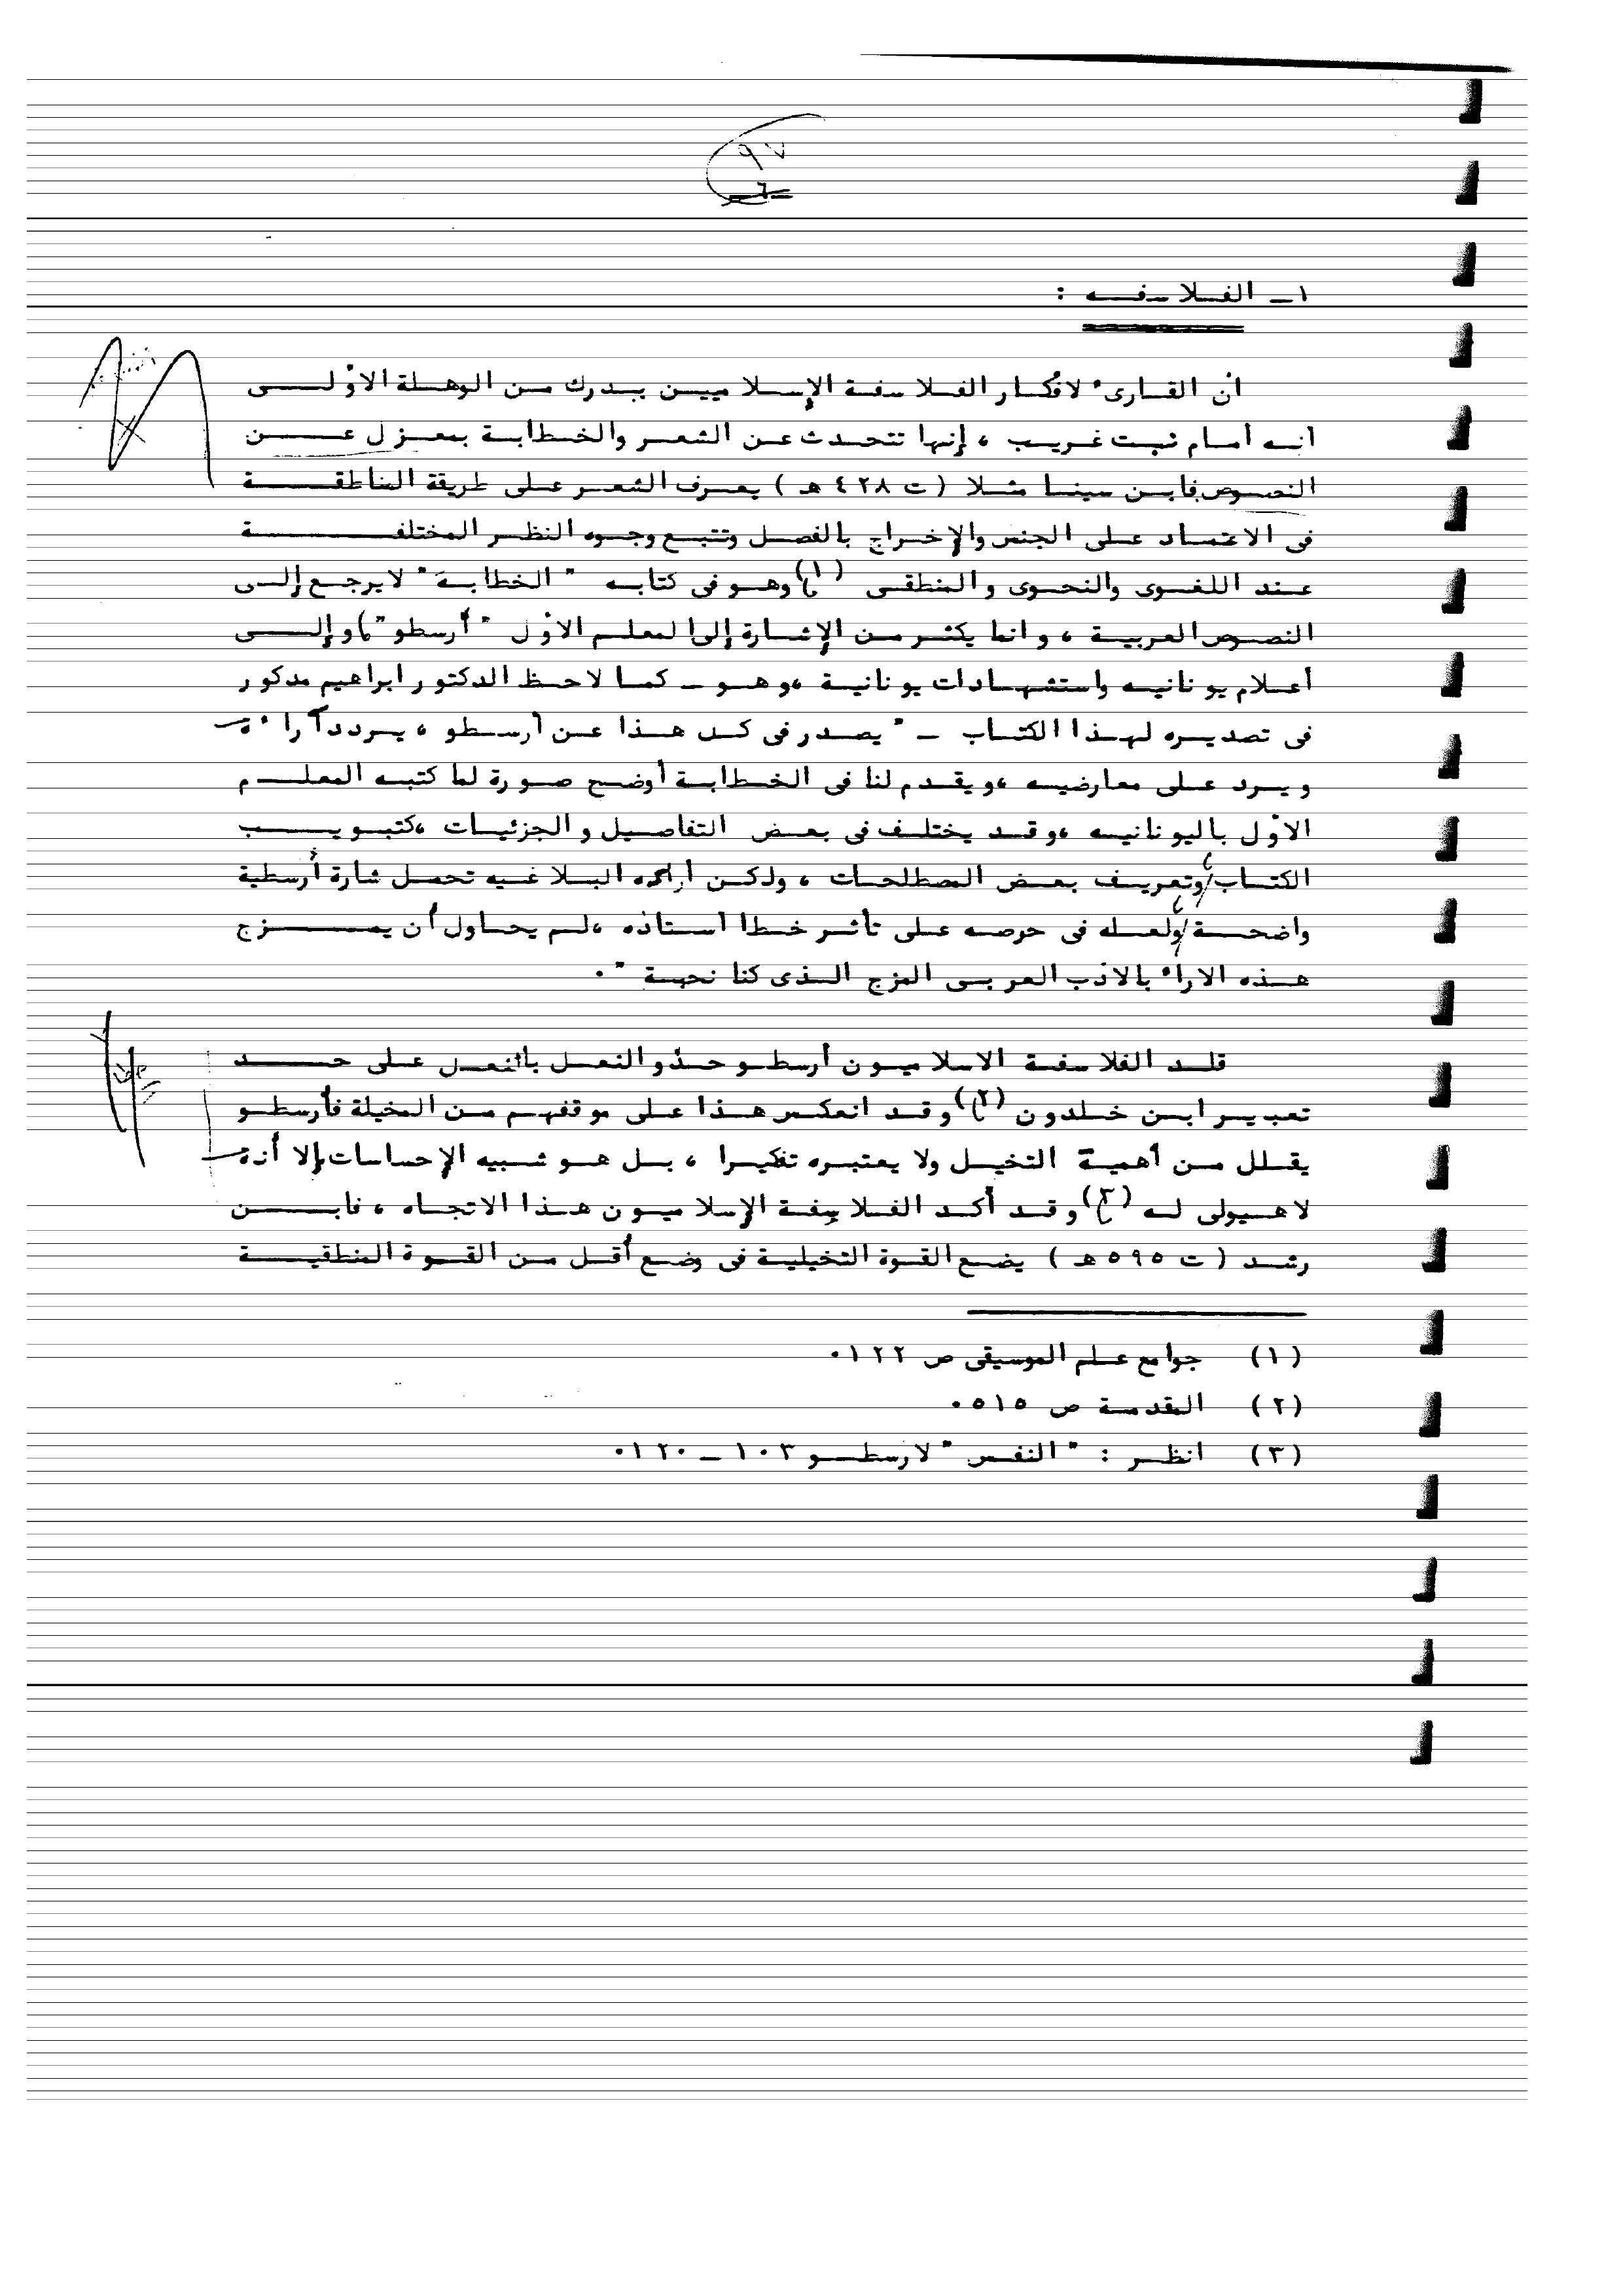 ٩٧
٦
١ـ الفلاسفه :
ان القارىء لأفكار الفلاسفة الإسلاميين يدرك من الوهلة الأولى
انه أمام نبت غريب ، إنها تتحدث عن الشعر والخطابة بمعزل عن
النصوص فابن سينا مثلا ( ت ٤٢٨ هـ ) يعرف الشعر على طريقة المناطقة
فى الاعتماد على الجنس والإخراج بالفصل وتتبع وجوه النظر المختلفة
عند اللغوى والنحوى والمنطقى (١) وهو فى كتابه " الخطابة " لايرجع إلى
النصوص العربية ، وانما يكثر من الإشارة إلى المعلم الأول " أرسطو " ، وإلى
أعلام يونانيه واستشهادات يونانية ،وهو ـ كما لاحظ الدكتور ابراهيم مدكور
فى تصديره لهذا الكتاب ـ " يصدر فى كل هذا عن أرسطو ، يردد آراءه
ويرد على معارضيه ،ويقدم لنا فى الخطابة أوضح صورة لما كتبه المعلم
الأول باليونانيه ،وقد يختلف فى بعض التفاصيل والجزئيات ،كتبويب
الكتاب ، وتعريف بعض المصطلحات ، ولكن آراءه البلاغيه تحمل شارة أرسطية
واضحة ، ولعله فى حرصه على تأثر خطا أستاذه ،لم يحاول أن يمزج
هذه الاراء بالأدب العربى المزج الذى كنا نحبة " ٠
قلد الفلاسفة الاسلاميون أرسطو حذو النعل بالنعل على حد
تعبير ابن خلدون (٢) وقد انعكس هذا على موقفهم من المخيلة فأرسطو
يقلل من أهمية التخيل ولا يعتبره تفكيرا ، بل هو شبيه الإحساسات إلا أنه
لاهيولى له (٣) وقد أكد الفلاسفة الإسلاميون هذا الاتجاه ، فابن
رشد ( ت ٥٩٥ هـ ) يضع القوة التخيلية فى وضع أقل من القوة المنطقية
(١) جوامع علم الموسيقى ص ١٢٢٠
(٢) المقدمة ص ٥١٥٠
(٣) انظر : " النفس " لارسطو ١٠٣ ـ ١٢٠٠